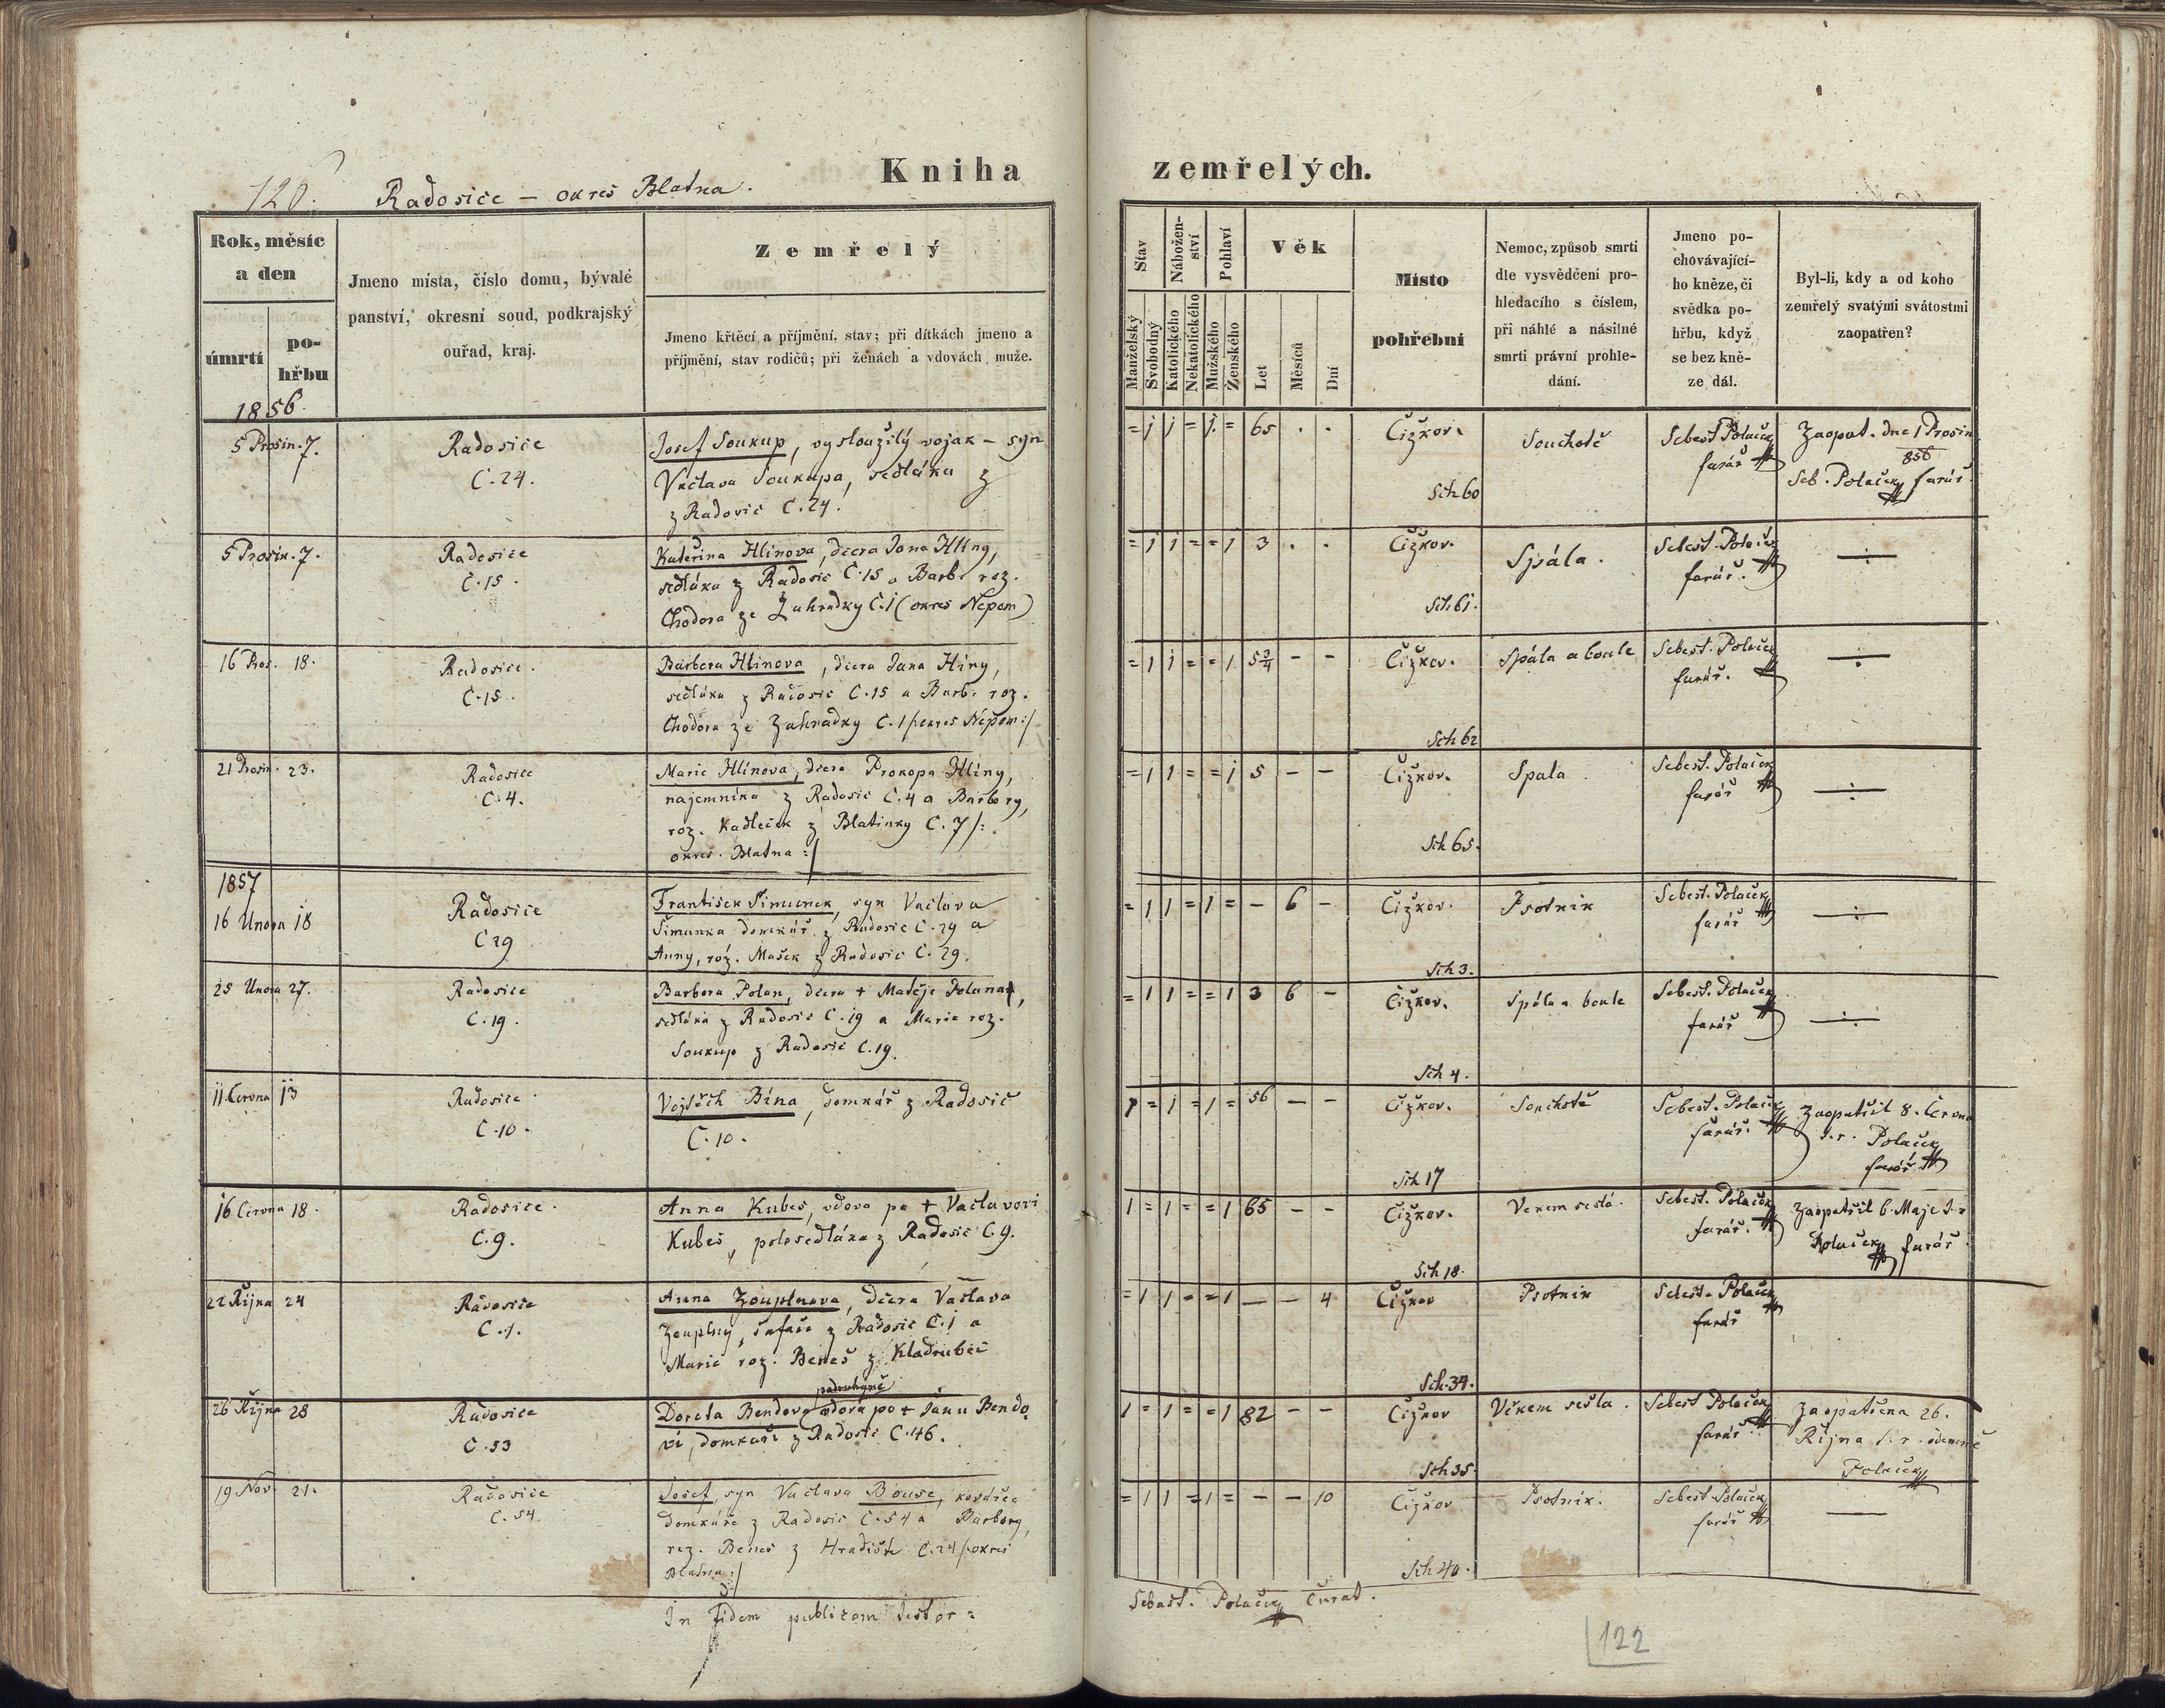 Kniha zemřelých.
120. Radosice – okres Blatna.
Rok, měsíc a den
úmrtí
pohřbu
Jmeno místa, číslo domu, bývalé
panství, okresní soud, podkrajský
ouřad, kraj.
Zemřelý
Jmeno křtěcí a příjmění, stav; při dítkách jmeno a
příjmění, stav rodičů; při ženách a vdovách muže.
Stav
Manželský
Svobodný
Náboženství
Katolického
Nekatolického
Pohlaví
Mužského
Ženského
Věk
Let
Měsíců
Dní
Místo
pohřební
Nemoc, způsob smrti
dle vysvědčení pro-
hledacího s číslem,
při náhlé a násilné
smrti právní prohle-
dání.
Jmeno po-
chovávající-
ho kněze, či
svědka po-
hřbu, když
se bez kně-
ze dál.
Byl-li, kdy a od koho
zemřelý svatými svátostmi
zaopatřen?
1856
5 Prosin. 7.
Radosice
C. 24.
Josef Soukup, vysloužilý vojak – syn
Václava Soukupa, sedláka z
z Radovic C. 24.
= 1 1 = 1 = 65 . .
Čižkov.
Sch 60
Souchotě
Sebest Polaček
farář
Zaopat. dne 1 Prosin
856
Seb. Polaček farář
5 Prosin. 7.
Radosice
C. 15.
Kateřina Hlinova, dcera Jana Hliny,
sedláka z Radosic C. 15 a Barb. roz.
Chodora ze Zahradky C. 1 (okres Nepom)
= 1 1 = = 1 3 . .
Čižkov.
Sch 61.
Spála.
Sebest. Polaček
farář.
16 Pros. 18.
Radosice.
C. 15.
Barbora Hlinova, dcera Jana Hliny,
sedláka z Radosic C. 15 a Barb. roz.
Chodora ze Zahradky C. 1 /:okres Nepom:/
= 1 1 = = 1 5 3/4 – –
Čižkov.
Sch 62
Spála a boule
Sebest. Polaček
farář.
21 Prosin. 23.
Radosice
C. 4.
Marie Hlinova, dcera Prokopa Hliny,
najemníka z Radosic C. 4 a Barbory,
roz. Kadleček z Blatinky C. 7 /:
okres. Blatna :/
= 1 1 = = 1 5 – –
Čižkov.
Sch 65.
Spala
Sebest. Polaček
farář
1857
16 Unora 18
Radosice
C 29
František Šimunek, syn Vaclava
Šimunka domkář z Radosic C. 29 a
Anny, roz. Mašek z Radosic C. 29.
= 1 1 = 1 = – 6 –
Čižkov.
Sch 3.
Psotnik
Sebest. Polaček
farář
25 Unora 27.
Radosice
C. 19.
Barbora Polan, dcera + Matěje Polana,
sedláka z Radosic C. 19 a Marie roz.
Soukup z Radosic C. 19.
= 1 1 = = 1 3 6 –
Čižkov.
Sch 4.
Spála a boule
Sebest. Polaček
farář
11 Června 13
Radosice
C. 10.
Vojtěch Bína, domkář z Radosic
C. 10.
1 = 1 = 1 = 56 – –
Čižkov.
Sch 17
Souchotě
Sebest. Polaček
farář.
Zaopatřil 8. Června
t. r. Polaček
farář
16 Června 18.
Radosice.
C. 9.
Anna Kubeš, vdova po + Vaclavovi
Kubeš, polosedláka z Radosic C. 9.
1 = 1 = = 1 65 – –
Čižkov.
Sch 18.
Vekem sešlá.
Sebest. Polaček
farář.
Zaopatřil 6. Maje t. r
Polaček farář
22 Října 24
Radosice
C. 1.
Anna Zouplnova, dcera Vaclava
Zouplny, šafáře z Radosic C. 1 a
Marie roz. Beneš z Kladrubec
= 1 1 = = 1 – – 4
Čižkov
Sch. 34.
Psotnik
Sebest. Polaček
farář
26 Října 28
Radosice
C. 53
podruhyně
Doreta Bendova vdova po + Janu Bendo
vi, domkáři z Radosic C. 46.
1 = 1 = = 1 82 – –
Čižkov
Sch 35.
Věkem sešla.
Sebest Polaček
farář.
Zaopatřena 26.
Října t. r.
Polaček
19 Nov. 21.
Radosice
C. 54.
Josef, syn Vaclava Bouse, kovářea
domkáře z Radosic C. 54 a Barbory,
roz. Beneš z Hradiště C. 24 /:okres
Blatna:/
= 1 1 = 1 = – – 10
Čižkov
Sch 40.
Psotník.
Sebest Polaček
farář
In fidem publicam testor:
Sebast. Polaček Curat.
122